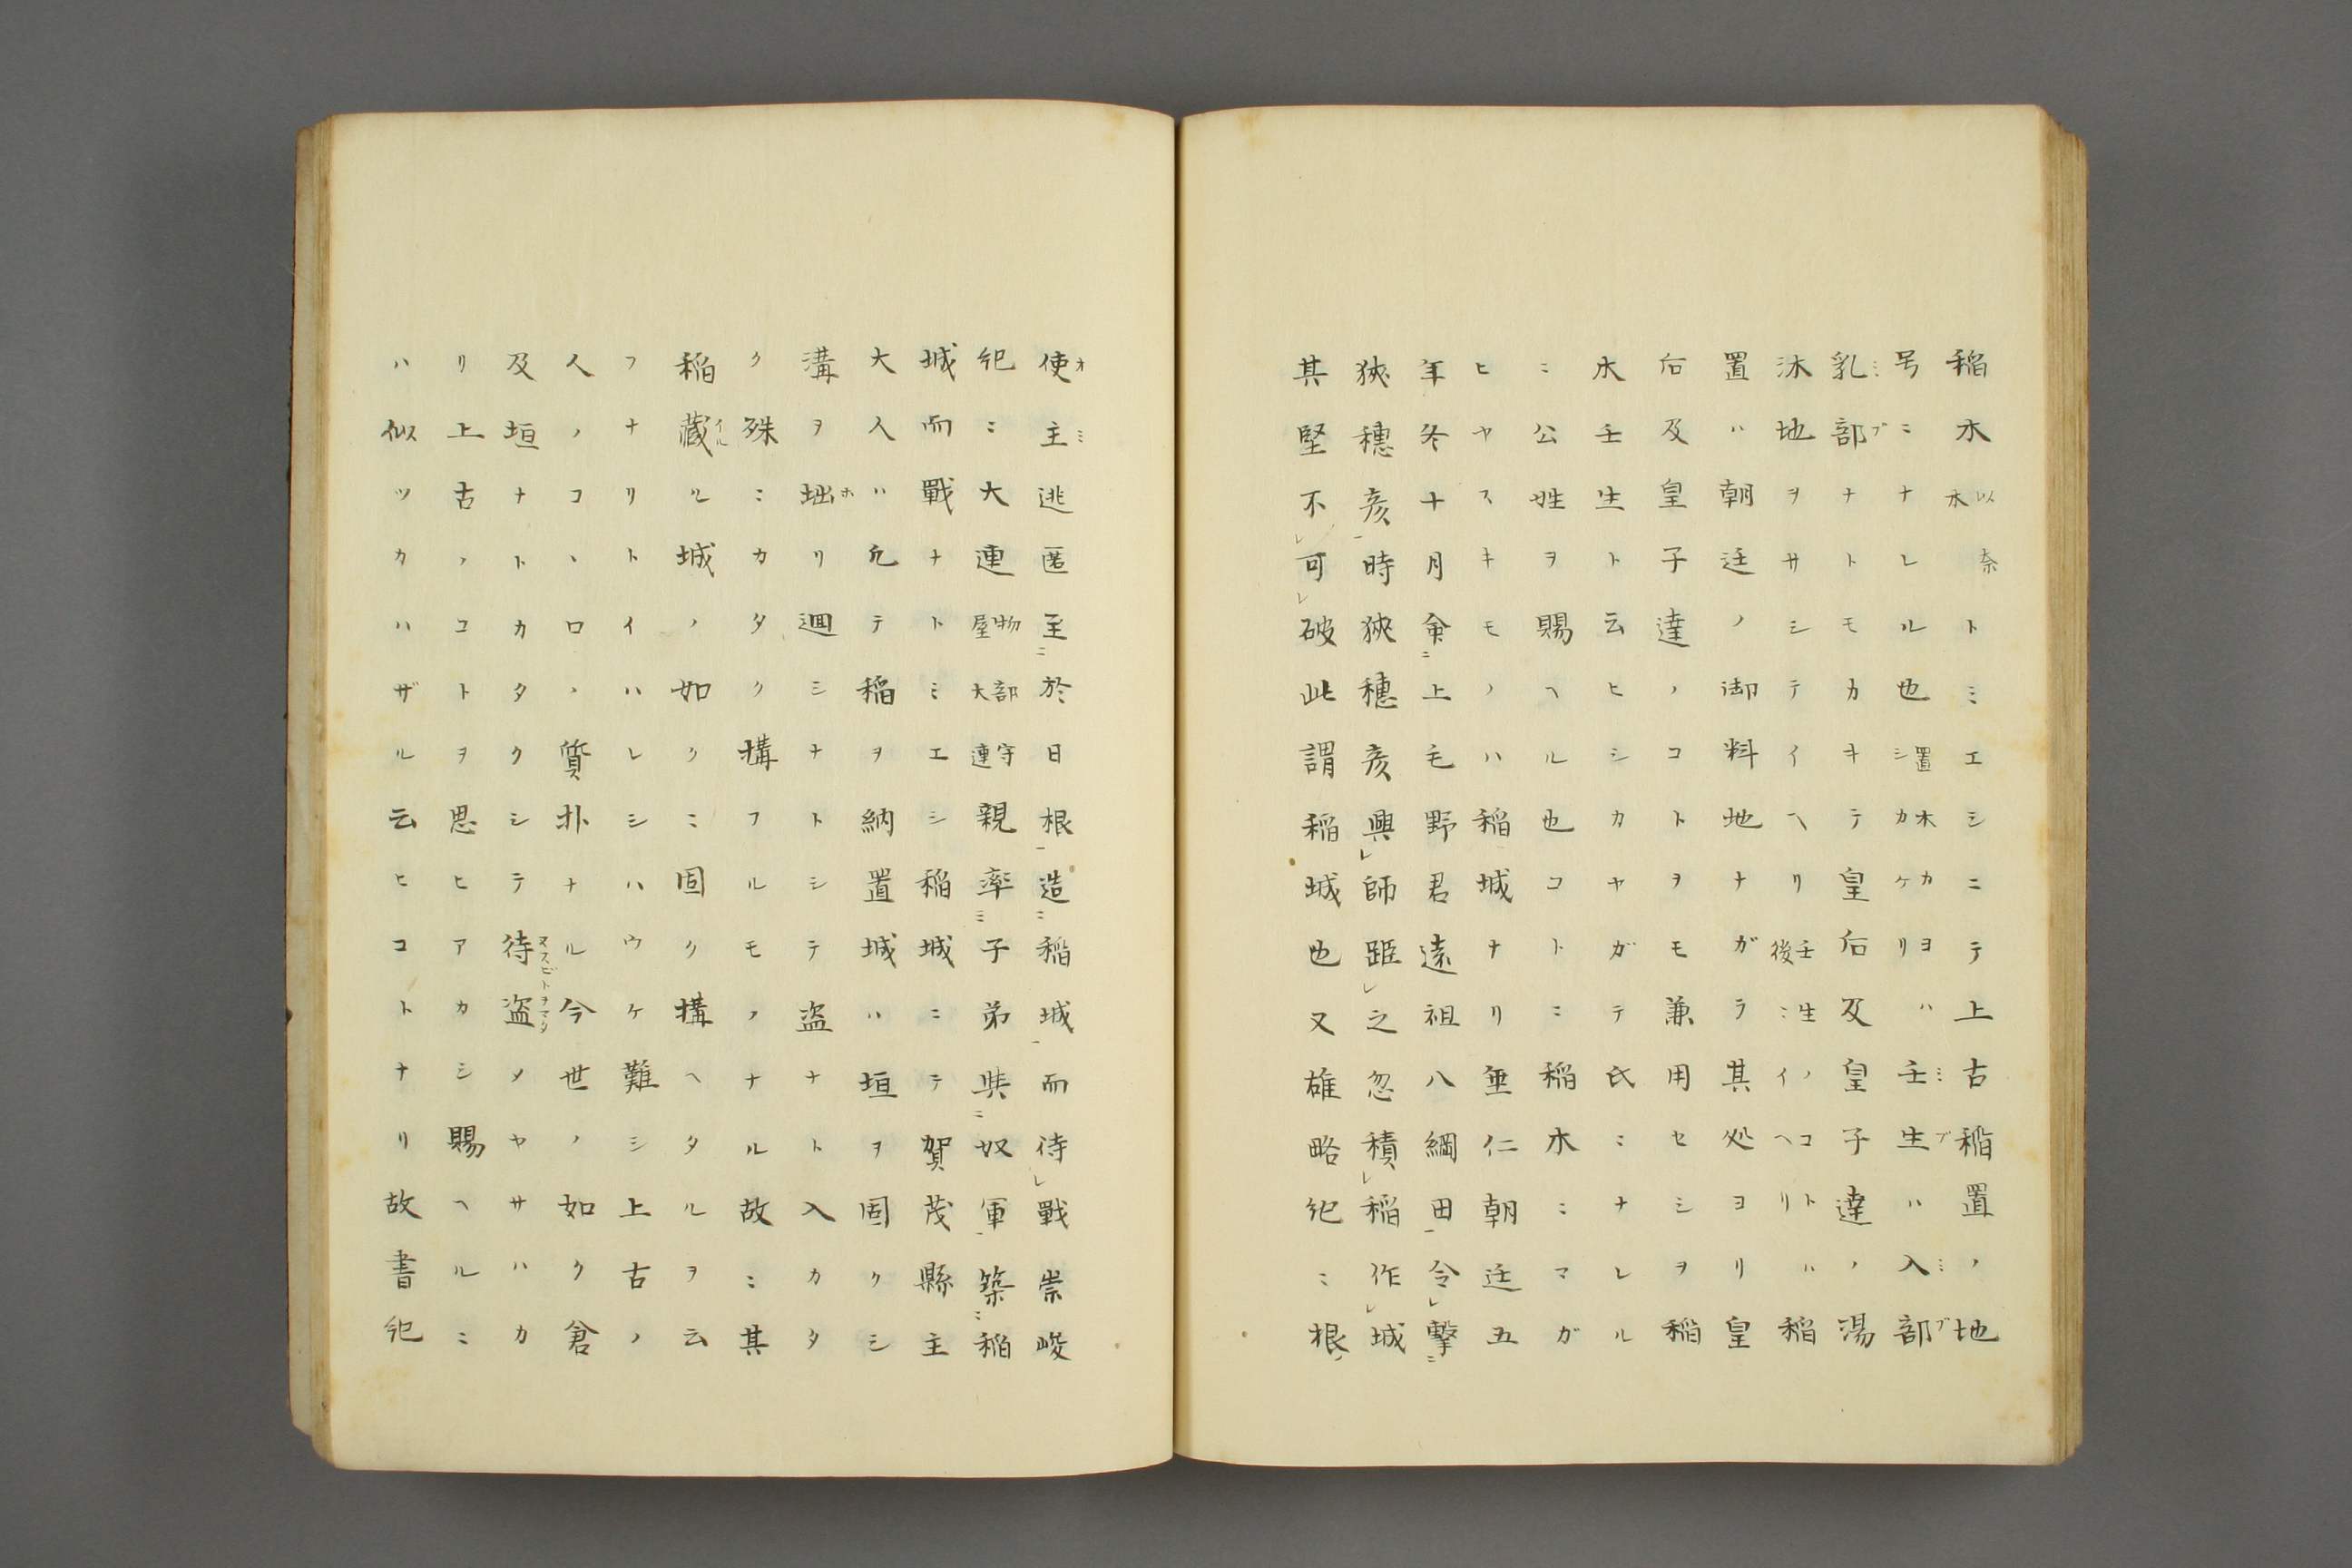 稲木以奈木トミエシニテ上古稲置ノ地
号ニナレル也置木カヨシカケリハ壬生ハ入部
乳部ナトモカキテ皇后及皇子達ノ湯
沐地ヲサシテイヘリ壬生ノコト後ニイヘリハ稲
置ハ朝廷ノ御料地ナガラ其処ヨリ皇
后及皇子達ノコトヲモ兼用セシヲ稲
木壬生ト云ヒシカヤガテ氏ニナレル
ニ公姓ヲ賜ヘル也コトニ稲木ニマガ
ヒヤスキモノハ稲城ナリ垂仁朝廷五
年冬十月命上毛野君遠祖八綱田令撃
狭穂彦時狭穂彦興師距之忽積稲作城
其堅不可破此謂稲城也又雄略紀ニ根
使主逃匿至於日根造稲城而待戰崇峻
紀ニ大連物部守屋大連親率子弟與奴軍築稲
城而戰ナトミエシ稲城ニテ賀茂縣主
大人ハ凡テ稲ヲ納置城ハ垣ヲ固クシ
溝ヲ堀リ廻シナトシテ盗ナト入カタ
ク殊ニカタク構フルモノナル故ニ其
稲蔵ル城ノ如クニ固ク構ヘタルヲ云
フナリトイハレシハウケ難シ上古ノ
人ノコヽロノ質朴ナル今世ノ如ク倉
及垣ナトカタクシテ待盗メヤサハカ
リ上古ノコトヲ思ヒアカシ賜ヘルニ
ハ似ツカハザル云ヒコトナリ故書紀